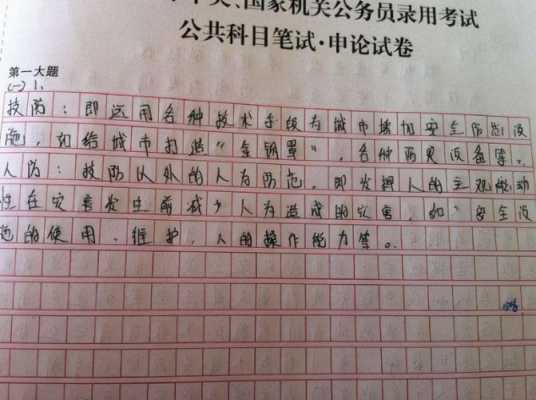 中央、国家机关公务员录用考试
公共科目笔试·申论试卷
第一大题
(一) 1、
技防：即运用各种技术手段为城市增加安全防范设
施，如给城市打造“金钟罩”，各种雨具设备等。
人防：技防以外的人为防范，即发挥人的主观能动
性在灾害发生前减少人为造成的灾害，如“安全设
施的使用、维护，人的操作能力等。